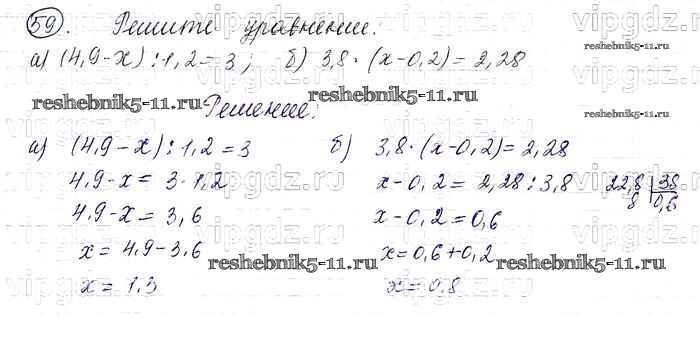 59. Решите уравнение.
а) (4,9-x):1,2=3; б) 3,8·(x-0,2)=2,28
reshebnik5-11.ru
reshebnik5-11.ru
Решение:
а) (4,9-x):1,2=3 б) 3,8·(x-0,2)=2,28
4,9-x= 3·1,2 x-0,2= 2,28:3,8 22,8 38
4,9-x= 3,6 x-0,2=0,6 8 0,6
x= 4,9-3,6 x=0,6+0,2
reshebnik5-11.ru
reshebnik5-11.ru
x= 1,3 x=0,8
vipgdz.ru